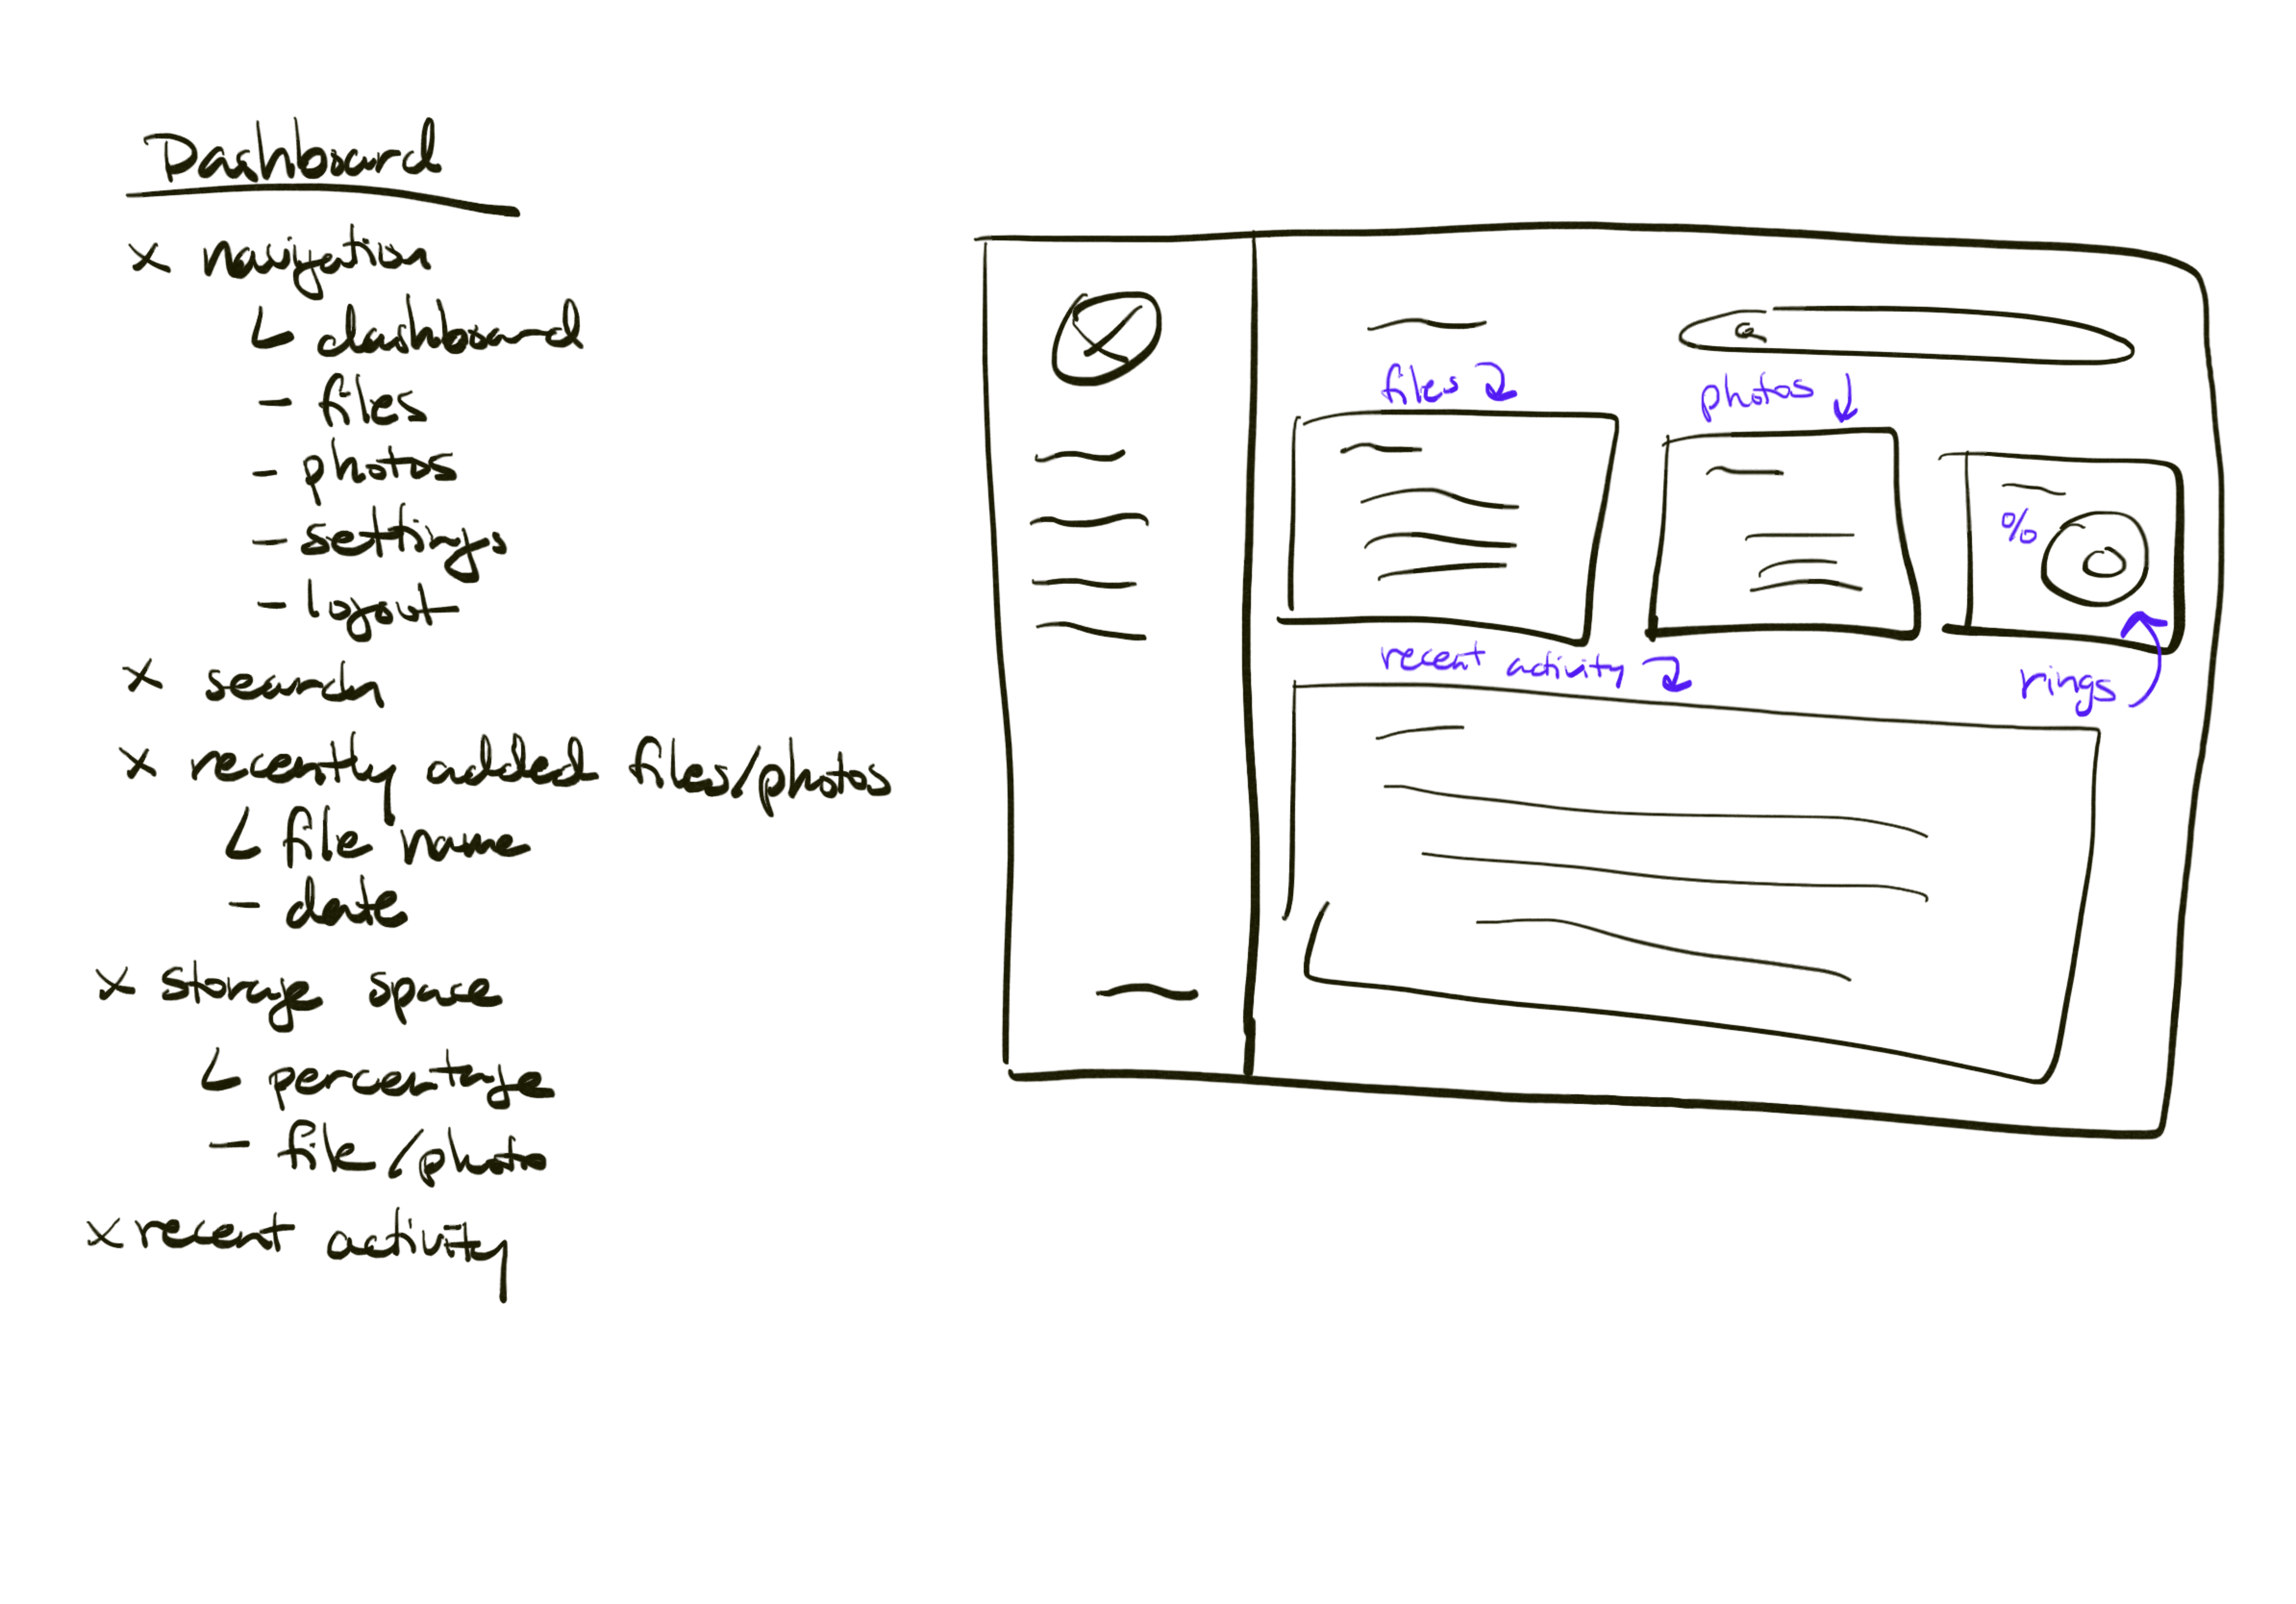 Dashboard
x navigation
↳ dashboard
- files
- photos
- settings
- logout
x search
x recently added files/photos
↳ file name
- date
x storage space
↳ percentage
- file/photo
x recent activity
files
photos
%
rings
recent activity